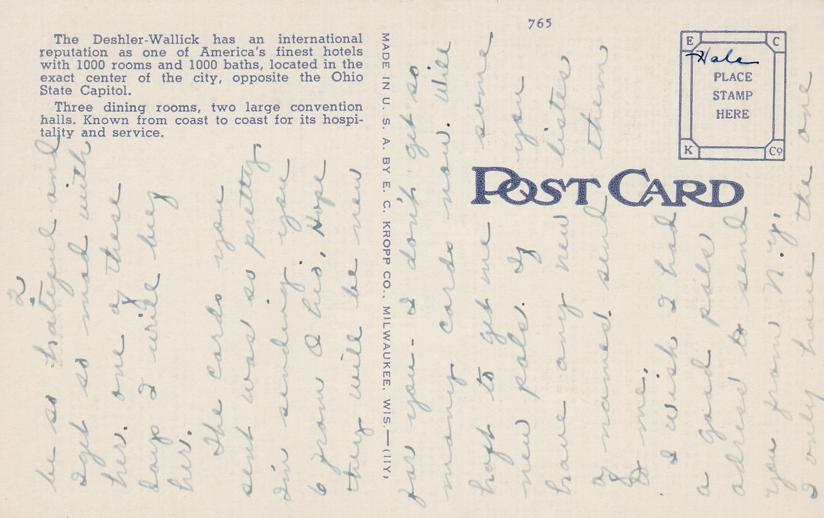 The Deshler-Wallick has an international
reputation as one of America's finest hotels
with 1000 rooms and 1000 baths, located in the
exact center of the city, opposite the Ohio
State Capitol.
Three dining rooms, two large convention
halls. Known from coast to coast for its hospi-
tality and service.
MADE IN U. S. A. BY E. C. KROPP CO., MILWAUKEE, WIS.—(11Y)
765
E C
K Co
PLACE
STAMP
HERE
POST CARD
2
be so hateful and
I get so mad with
her. one of these
days I will beg
her.
The cards you
sent was so pretty.
I'm sending you
6 from Ohio, Hope
they will be new
for you - I don't get so
many cards now. Will
haft to get me some
new pals. If you
have any new listes
of names send them
to me.
I wish I had
a good pals
adress to send
you from N.Y.
I only have the one